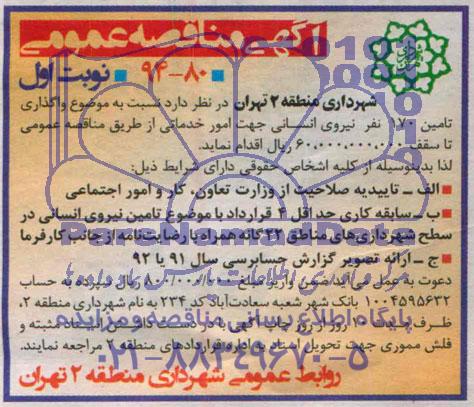 آگهی مناقصه عمومی
۸۰-۹۴
نوبت اول
شهرداری منطقه ۲ تهران در نظر دارد نسبت به موضوع واگذاری
تامین ۱۷۰ نفر نیروی انسانی جهت امور خدماتی از طریق مناقصه عمومی
تا سقف ۶۰,۰۰۰,۰۰۰,۰۰۰ ریال اقدام نماید.
لذا بدینوسیله از کلیه اشخاص حقوقی دارای شرایط ذیل:
الف ـ تاییدیه صلاحیت از وزارت تعاون، کار و امور اجتماعی
ب ـ سابقه کاری حداقل ۲ قرارداد با موضوع تامین نیروی انسانی در
سطح شهرداری‌های مناطق ۲۲ گانه همراه با رضایت‌نامه از جانب کارفرما
ج ـ ارائه تصویر گزارش حسابرسی سال ۹۱ یا ۹۲
دعوت به عمل می‌آید ضمن واریز مبلغ ۸۰۰/۰۰۰/۰۰۰ ریال سپرده به حساب
۱۰۰۴۵۹۵۶۳۲ بانک شهر شعبه سعادت‌آباد کد ۲۳۴ به نام شهرداری منطقه ۲،
ظرف مدت ۱۰ روز از روز چاپ آگهی با در دست داشتن اسناد مثبته و
فلش مموری جهت تحویل اسناد به اداره قراردادهای منطقه ۲ مراجعه نمایند.
روابط عمومی شهرداری منطقه ۲ تهران
پایگاه اطلاع رسانی مناقصه و مزایده
۰۲۱-۸۸۳۴۹۶۷۰-۵